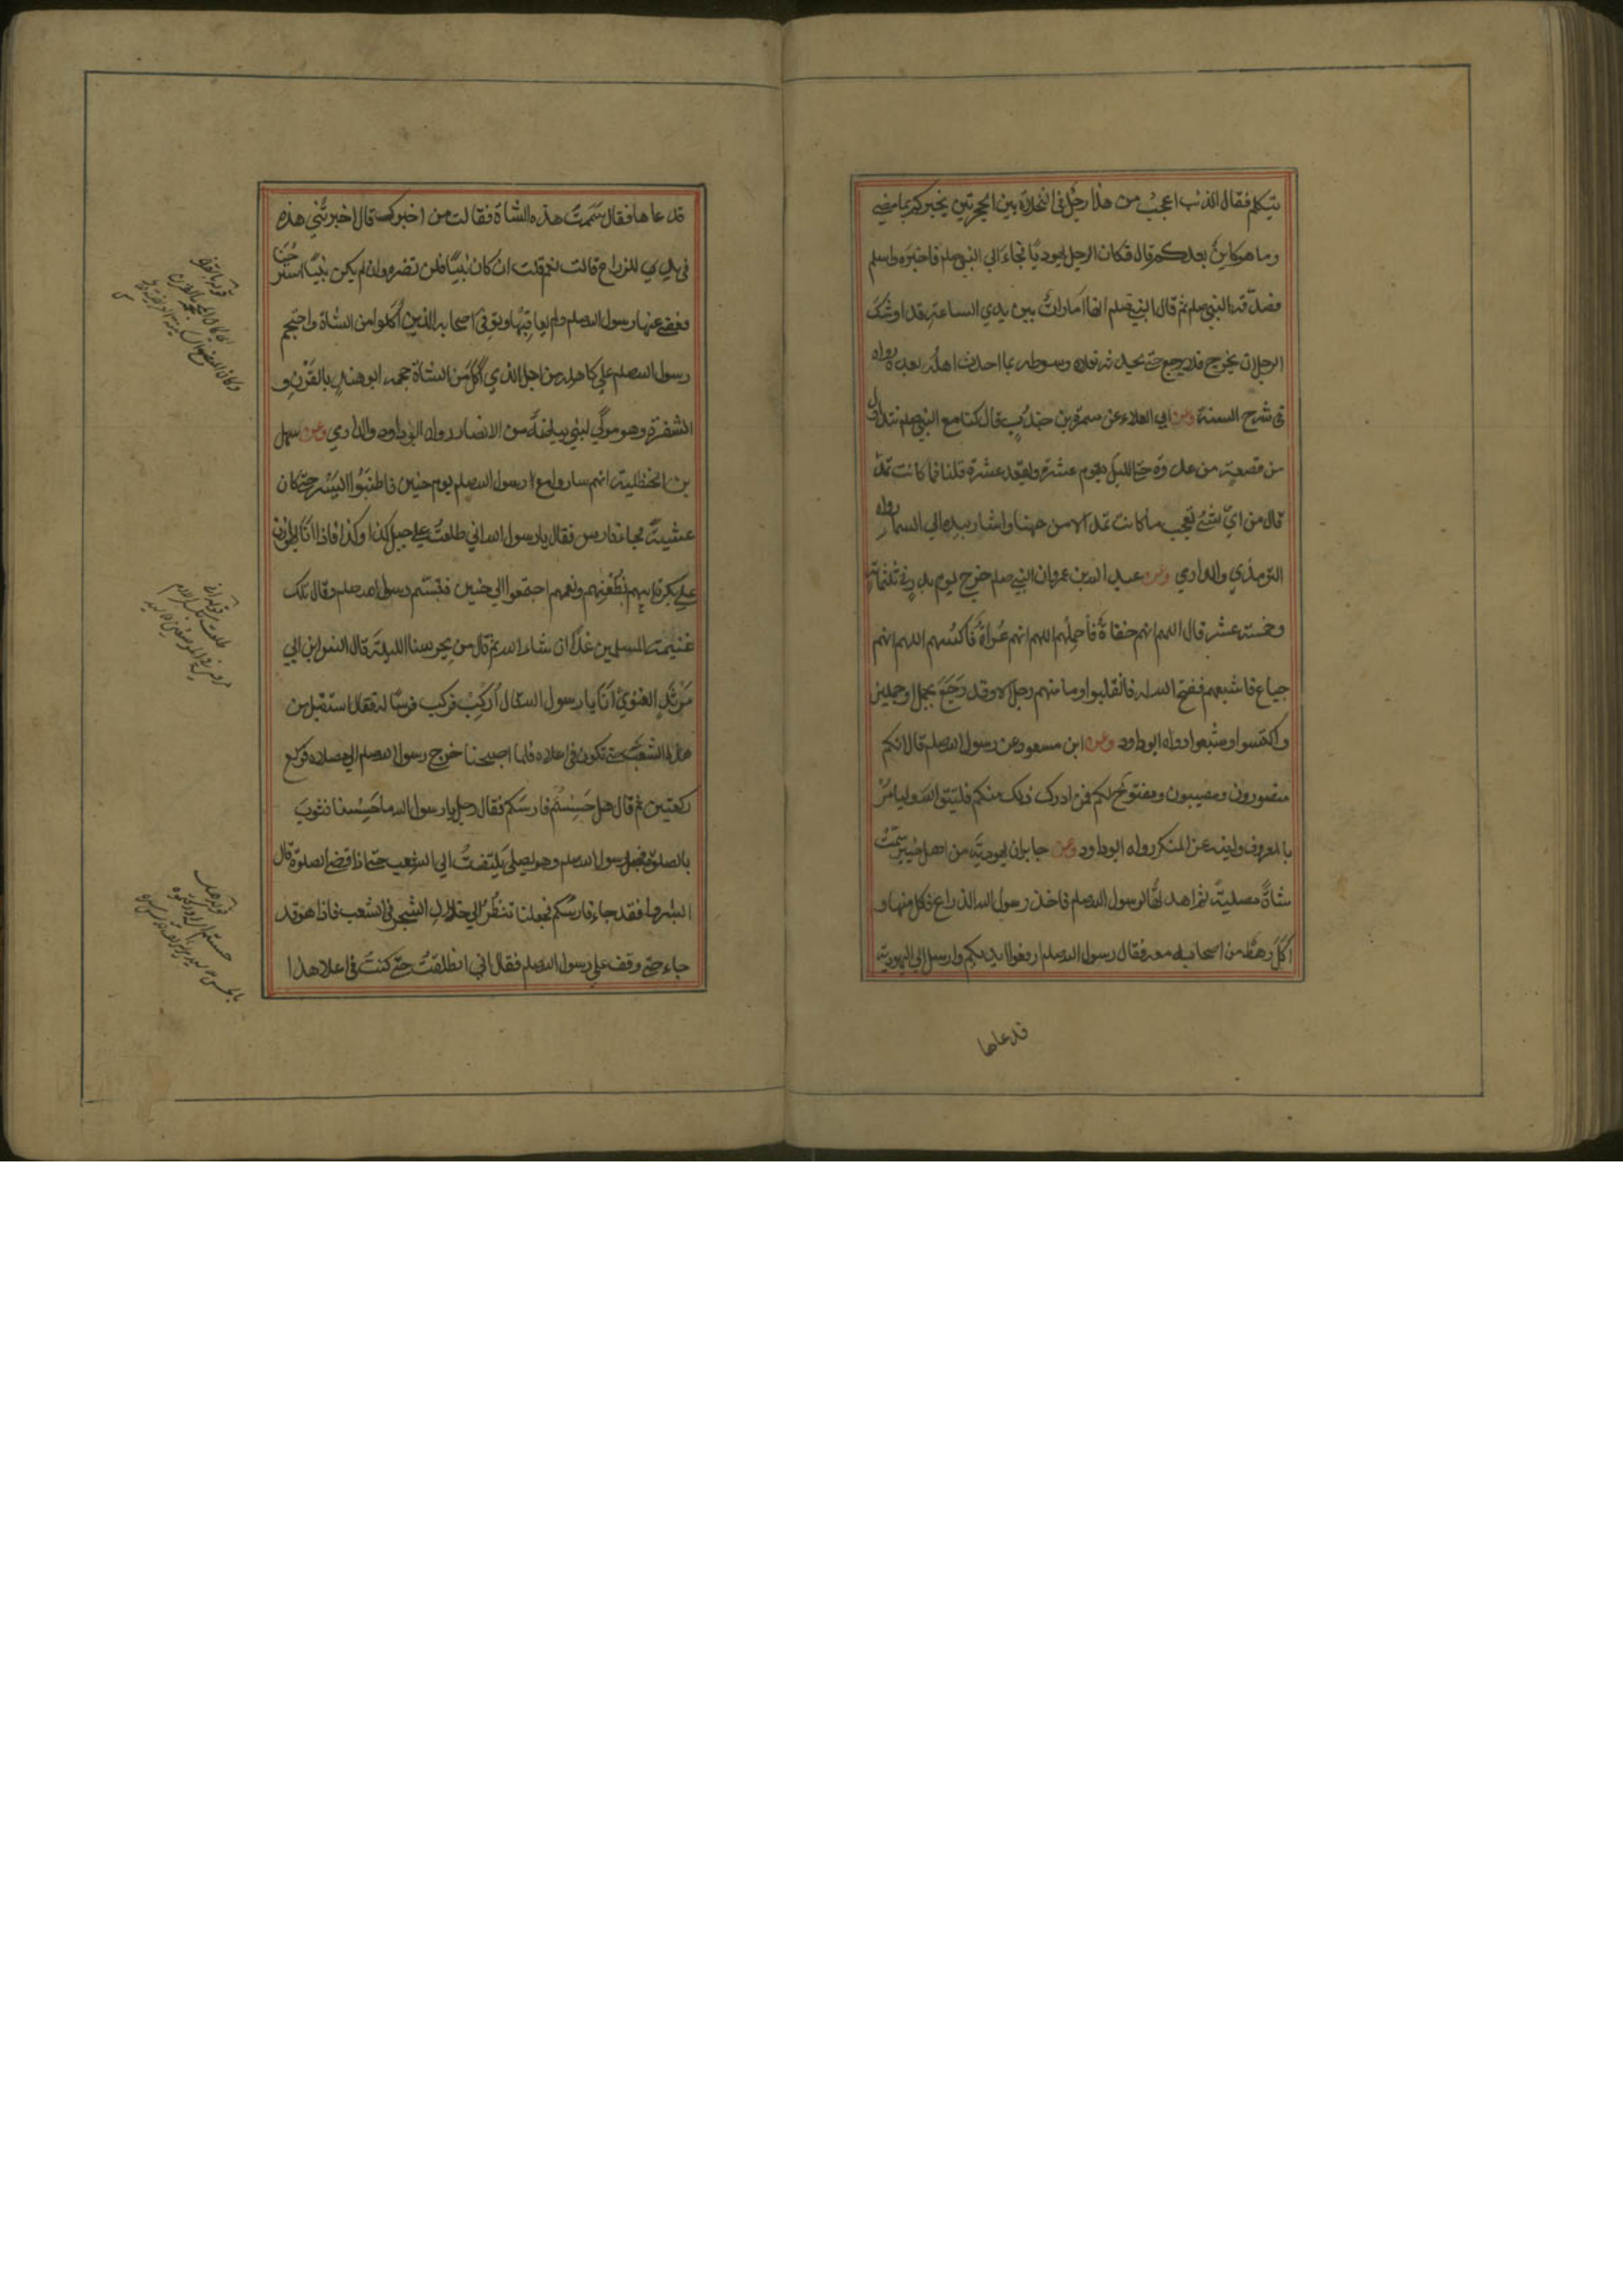 يتكلم فقال الذئب اعجب من هذا رجل في النخلات بين الحرتين يخبركم بما مضى
وما هو كاين بعدكم قال فكان الرجل يهوديًا فجاء الي النبي صلم فاخبره واسلم
فصدّقه النبي صلم ثم قال النبي صلم انها امارات بين يدي الساعة قد اوشك
الرجل ان يخرج فلا يرجع حتي يحدثه نعلاه وسوطه بما احدث اهله بعده رواه
في شرح السنة وعن ابي العلاء عن سمرة بن جندب قال كنا مع النبي صلم نتداول
من قصعة من غدوة حتي الليل يقوم عشرة ويقعد عشرة قلنا فما كانت تمد
قال من اي شئ تعجب ما كانت تمد الا من ههنا واشار بيده الي السماء رواه
الترمذي والدارمي وعن عبد الله بن عمرو ان النبي صلم خرج يوم بدر في ثلثمائة
وخمسة عشر قال اللهم انهم حفاة فاحملهم اللهم انهم عراة فاكسهم اللهم انهم
جياع فاشبعهم ففتح الله له فانقلبوا وما منهم رجل الا وقد رجع بجمل او جملين
واكتسوا وشبعوا رواه ابو داود وعن ابن مسعود عن رسول الله صلم قال انكم
منصورون ومصيبون ومفتوح لكم فمن ادرك ذلك منكم فليتق الله وليامر
بالمعروف ولينه عن المنكر رواه ابو داود وعن جابر ان يهودية من اهل خيبر سمّت
شاةً مصلية ثم اهدتها لرسول الله صلم فاخذ رسول الله الذراع فاكل منها و
اكل رهط من اصحابه معه فقال رسول الله صلم ارفعوا ايديكم وارسل الي اليهودية
فدعاها
فدعاها فقال سممت هذه الشاة فقالت من اخبرك قال اخبرتني هذه
في يدي للذراع قالت نعم قلت ان كان نبيًا فلن تضره وان لم يكن نبيًا استرحنا
فعفي عنها رسول الله صلم ولم يعاقبها وتوفي اصحابه الذين اكلوا من الشاة واحتجم
رسول الله صلم علي كاهله من اجل الذي اكل من الشاة حجمه ابو هند بالقرن و
الشفرة وهو مولي لبني بياضة من الانصار رواه ابو داود والدارمي وعن سهل
بن الحنظلية انهم ساروا مع رسول الله صلم يوم حنين فاطنبوا السير حتي كان
عشية فجاء فارس فقال يا رسول الله اني طلعت علي جبل كذا وكذا فاذا انا بهوازن
علي بكرة ابيهم بظعنهم ونعمهم اجتمعوا الي حنين فتبسم رسول الله صلم وقال تلك
غنيمة المسلمين غدًا ان شاء الله ثم قال من يحرسنا الليلة قال انس ابن ابي
مرثد الغنوي انا يا رسول الله قال اركب فركب فرسًا له فقال استقبل
هذا الشعب حتي تكون في اعلاه فلما اصبحنا خرج رسول الله صلم الي مصلاه فركع
ركعتين ثم قال هل حسستم فارسكم فقال رجل يا رسول الله ما حسسنا فثوب
بالصلوة فجعل رسول الله صلم وهو يصلي يلتفت الي الشعب حتي اذا قضي الصلوة قال
ابشروا فقد جاء فارسكم فجعلنا ننظر الي خلال الشجر في الشعب فاذا هو قد
جاء حتي وقف علي رسول الله صلم فقال اني انطلقت حتي كنت في اعلا هذا